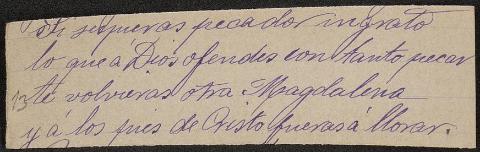 Si supieras pecador ingrato
lo que a Dios ofendes con tanto pecar
13 te volvieras otra Magdalena
y á los pies de Cristo fueras á llorar.